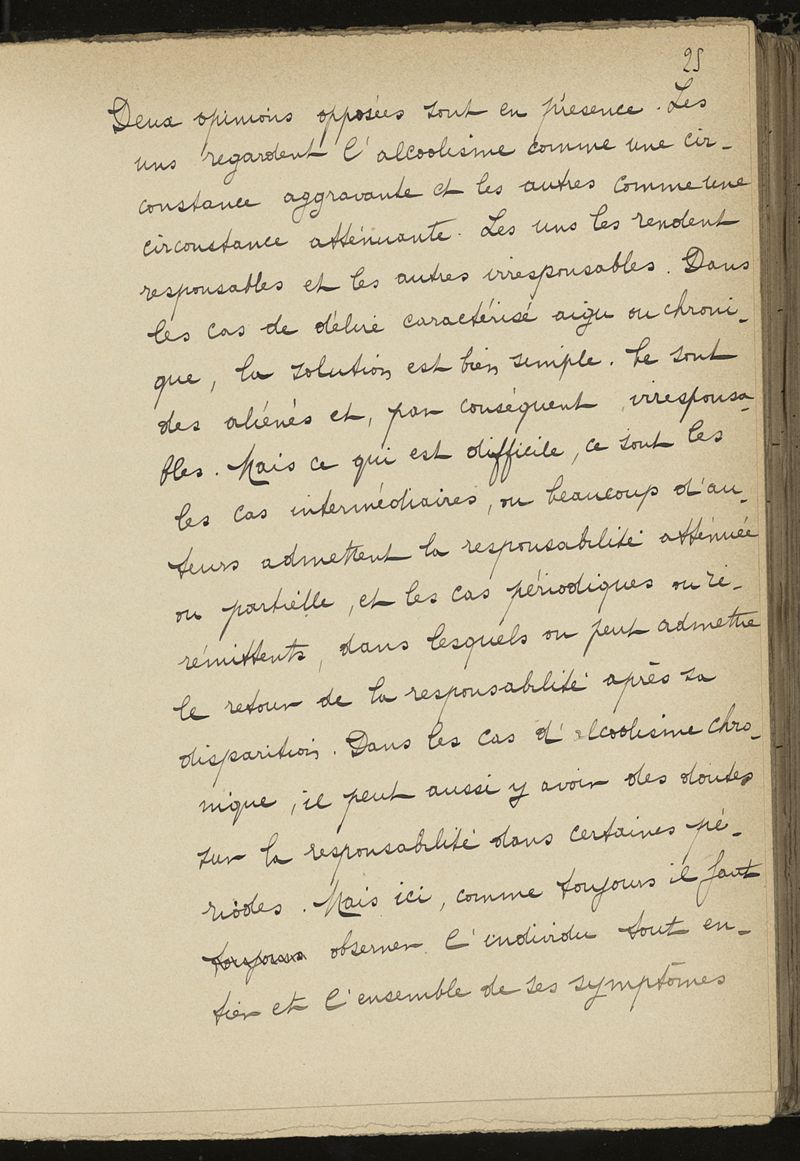 25
Deux opinions opposées sont en présence. Les
uns regardent l'alcoolisme comme une cir-
constance aggravante et les autres comme une
circonstance atténuante. Les uns les rendent
responsables et les autres irresponsables. Dans
les cas de délire caractérisé aigu ou chroni-
que, la solution est bien simple. Ce sont
des aliénés et, par conséquent, irresponsa-
bles. Mais ce qui est difficile, ce sont les
les cas intermédiaires, ou beaucoup d'au-
teurs admettent la responsabilité atténuée
ou partielle, et les cas périodiques ou ré-
rémittents, dans lesquels on peut admettre
le retour de la responsabilité après sa
disparition. Dans les cas d'alcoolisme chro-
nique, il peut aussi y avoir des doutes
sur la responsabilité dans certaines pé-
riodes. Mais ici, comme toujours il faut
toujours observer l'individu tout en-
tier et l'ensemble de ses symptômes